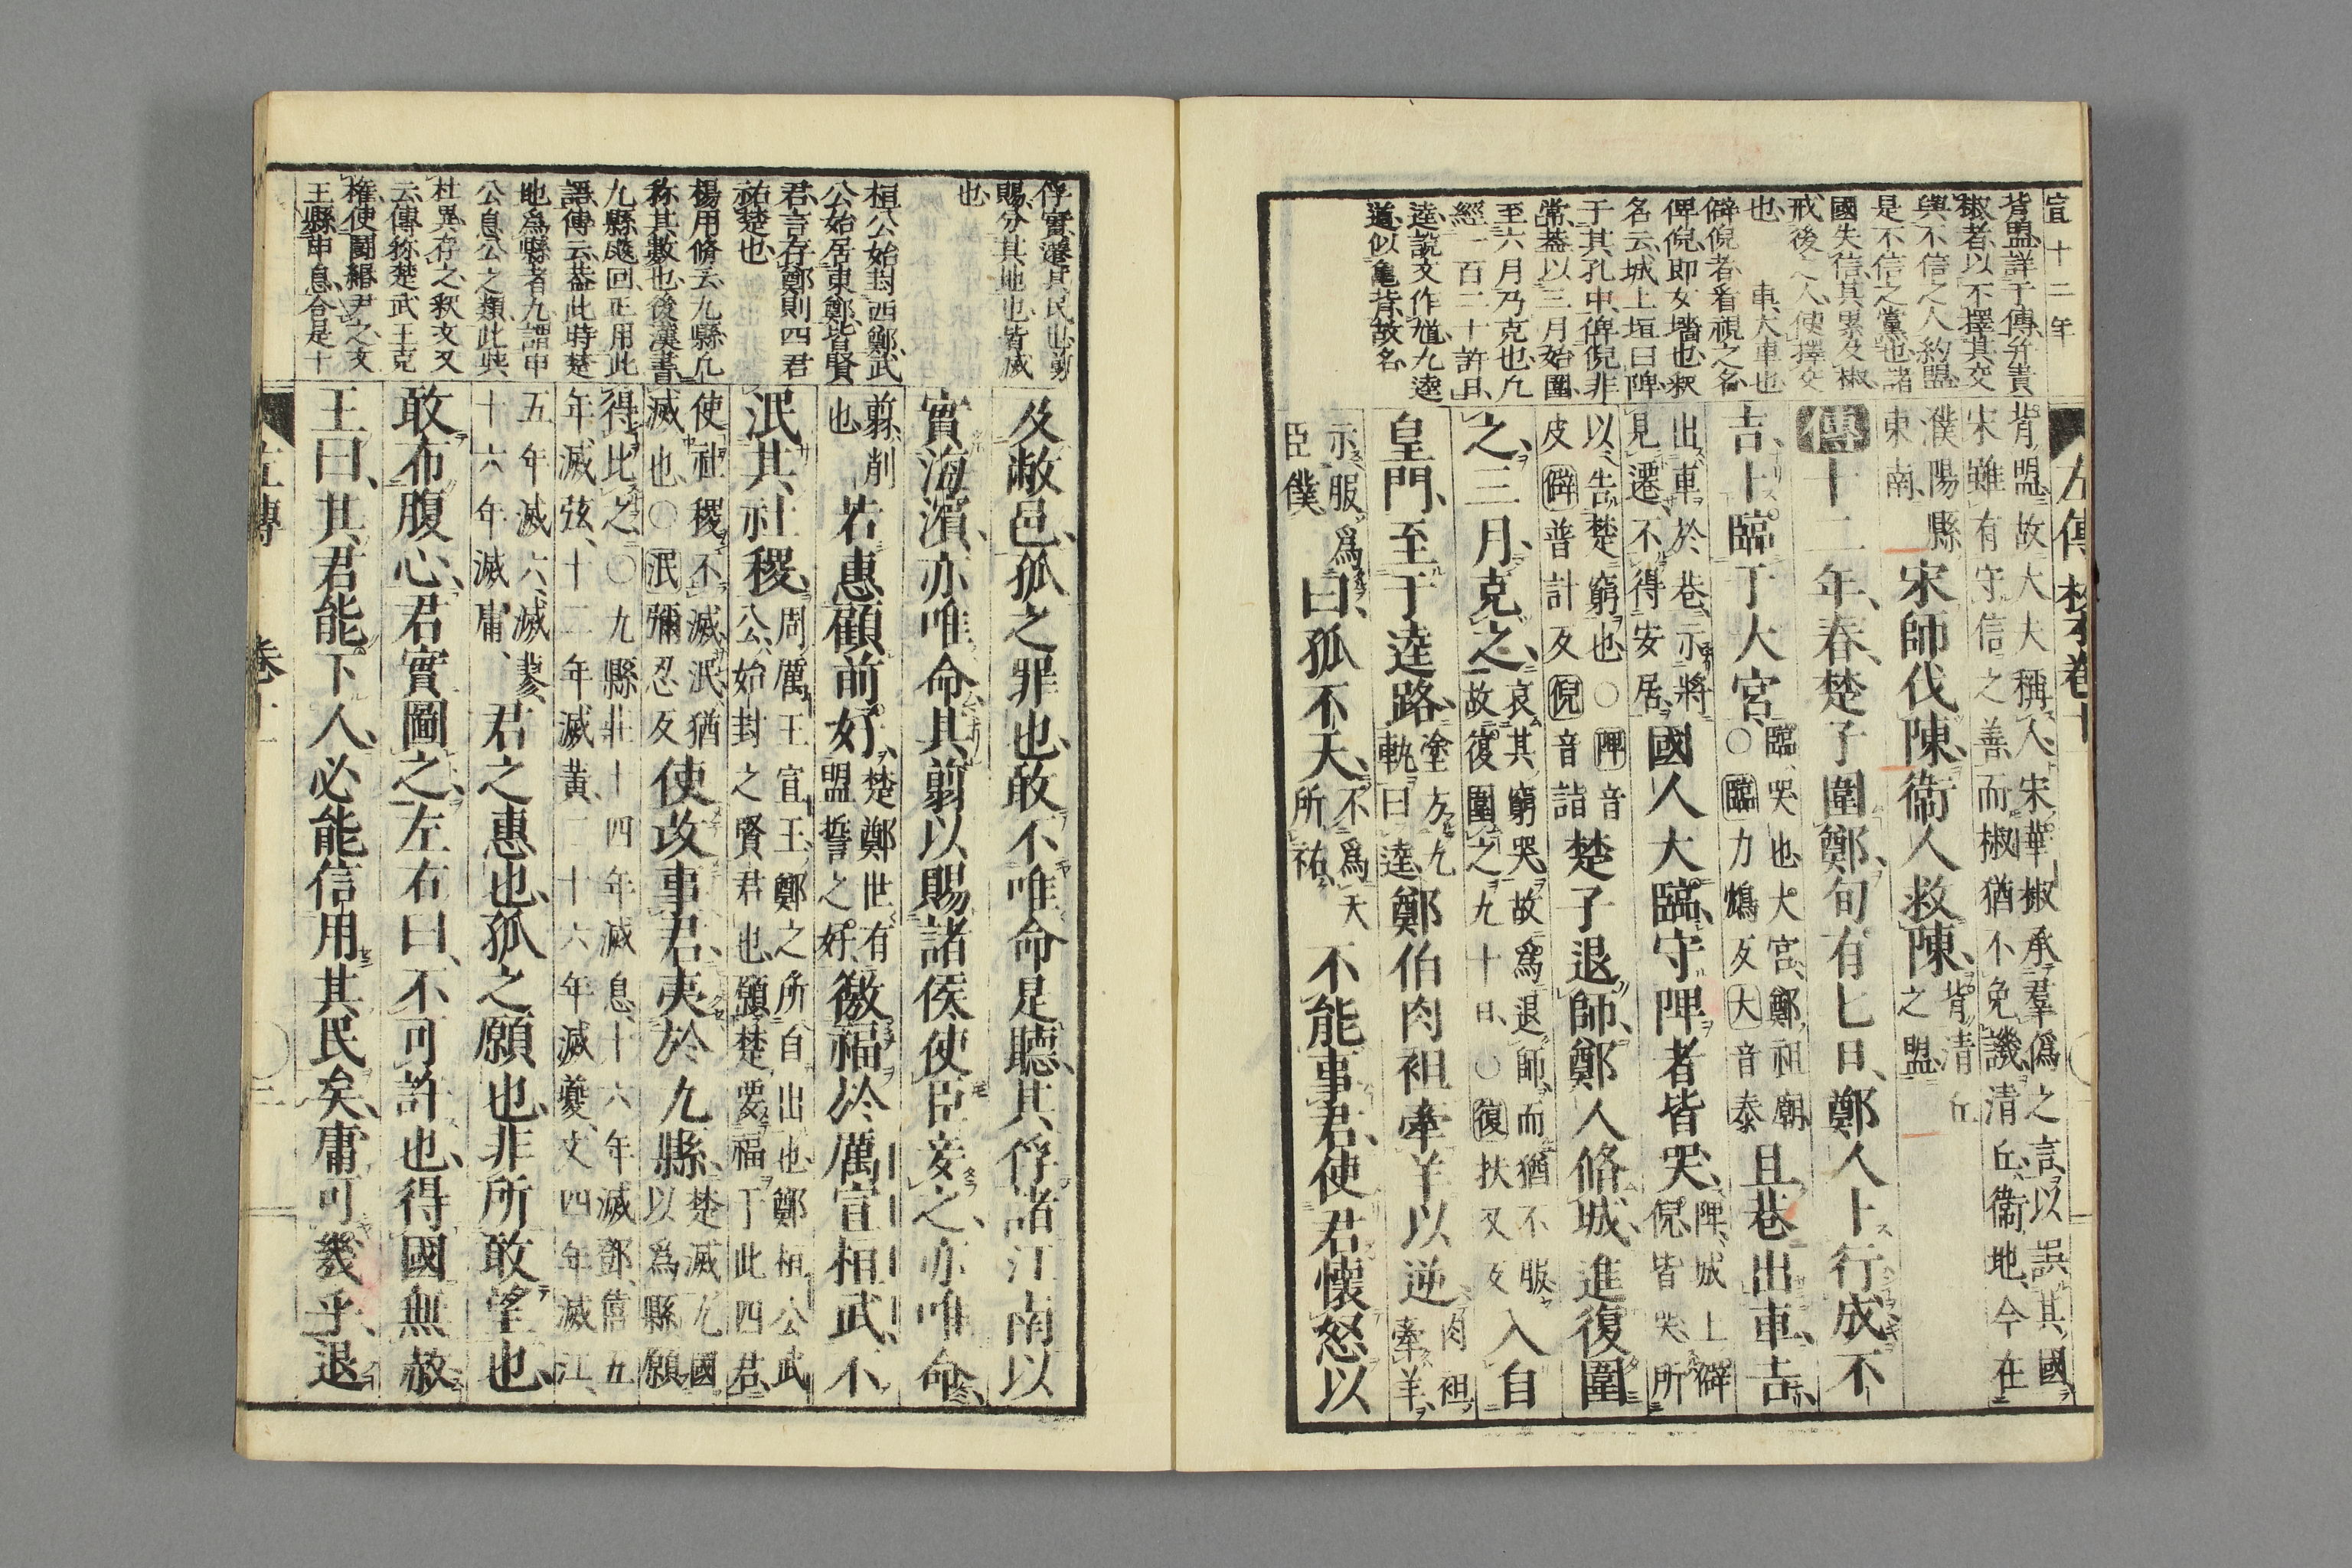 宣十二年
背盟、詳于傳、弁責
椒者、以不擇其交
與不信之人約盟、
是不信之黨也、諸
國失信、其累及椒、
戒後之人、使擇交
也、　車、大車也
僻倪者、看視之名
俾倪、即女墻也、釈
名云、城上垣曰陴、
于其孔中、俾倪非
常、蓋以三月始圍、
至六月乃克也、凡
經一百二十許日、
逵、説文作馗、九逵
道、似亀背、故名、
左傳 卷十
背盟、故大夫稱人、宋華椒承羣僞之言、以誤其國、
宋雖有守信之善、而椒猶不免譏、清丘、衞地、今在
濮陽縣東南、宋師伐陳、衞人救陳、背清丘之盟、
傳十二年、春、楚子圍鄭、旬有七日、鄭人卜行成、不
吉、卜臨于大宮、臨、哭也、大宮、鄭祖廟、○臨力鴆反大音泰且巷出車、吉、
出車於巷、示將見遷、不得安居、國人大臨、守陴者皆哭、陴、城上僻倪、皆哭、所
以告楚窮也、○陴音皮僻普計反倪音詣楚子退師、鄭人脩城、進復圍
之、三月、克之、哀其窮哭、故爲退師、而猶不服、故復圍之九十日、○復扶又反入自
皇門、至于逵路、塗方九軌曰逵、鄭伯肉袒牽羊以逆、肉袒牽羊、
示服爲臣僕、曰、孤不天、不爲天所祐、不能事君、使君懷怒以
俘實濱其民也、剪
賜、分其地也、皆滅
也、
桓公始封西鄭、武
公始居東鄭、皆賢
君、言存鄭則四君
祐楚也、
楊用脩云、九縣凡
称其數也、後漢書、
九縣飈回、正用此
語、傳云、蓋此時楚
地爲縣者九、謂申
公息公之類、此與
杜異、存之、釈文又
云、傳称楚武王克
権、使鬪緡尹之、文
王縣申息、合是十
及敝邑、孤之罪也、敢不唯命是聽、其俘諸江南、以
實海濱、亦唯命、其翦以賜諸侯、使臣妾之、亦唯命、
翦、削也、若惠顧前好、楚鄭世有盟誓之好、徼福於厲宣桓武、不
泯其社稷、周厲王宣王、鄭之所自出也、鄭桓公武公、始封之賢君也、願楚要福于此四君、
使社稷不滅、泯、猶滅也、○泯彌忍反使改事君、夷於九縣、楚滅九國以爲縣、願
得比之、○九縣莊十四年滅息、十六年滅鄧、僖五年滅弦、十二年滅黄、二十六年滅夔、文四年滅江、
五年滅六、滅蓼、十六年滅庸、君之惠也、孤之願也、非所敢望也、
敢布腹心、君實圖之、左右曰、不可許也、得國無赦、
王曰、其君能下人、必能信用其民矣、庸可幾乎、退
左傳　卷十一　○三